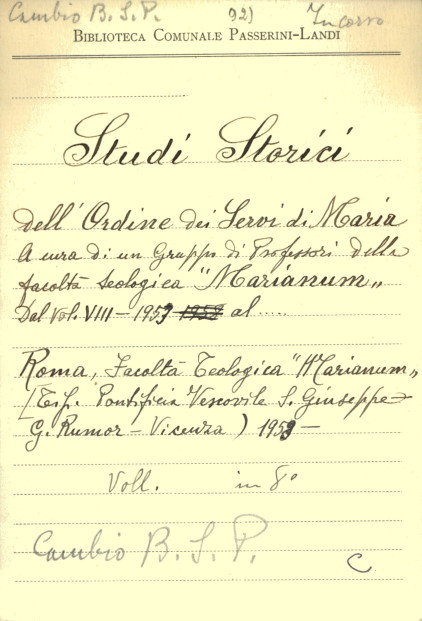 Cambio B.S.P. 92) In corso
BIBLIOTECA COMUNALE PASSERINI-LANDI
Studi Storici
dell'Ordine dei Servi di Maria
A cura di un Gruppo di Professori della
facoltà teologica "Marianum„
Dal Vol. VIII - 1953 1952 al .....
Roma, Facoltà Teologica "Marianum„
(Tip. Pontificia Vescovile S. Giuseppe
G. Rumor - Vicenza) 1953 -
Voll. in 8°
Cambio B.S.P.
C